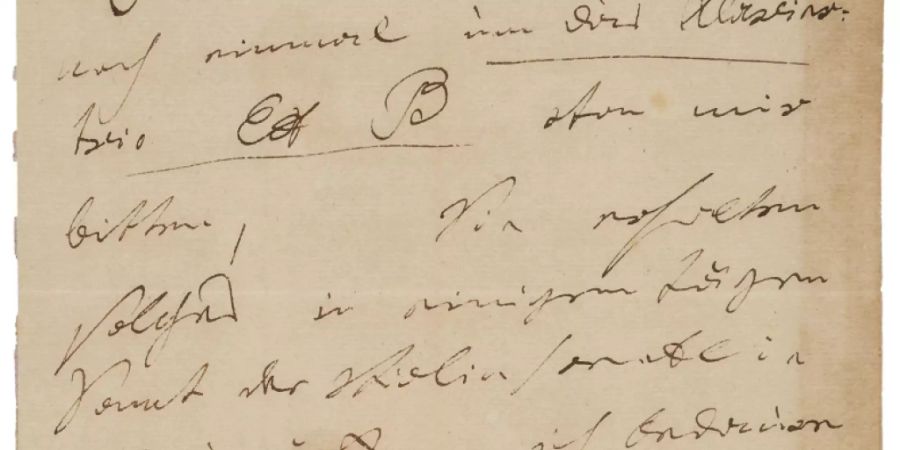 noch einmal um das Klavier:
trio B von mir
bitten, Sie erhalten
solches in einigen Tägen
samt der Violin sonate in
ich